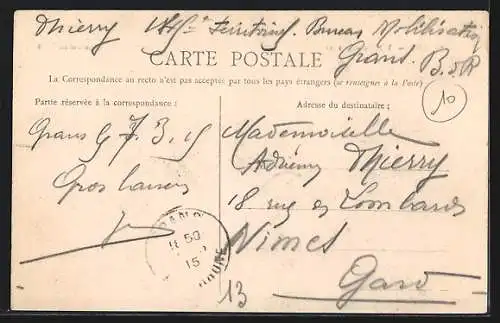 Thierry Territorial. Bureau Mobilisation
CARTE POSTALE
Grans. B. d R
La Correspondance au recto n'est pas acceptée par tous les pays étrangers (se renseigner à la Poste)
Partie réservée à la correspondance :
Adresse du destinataire :
10
Grans 7. 3. 15
Mademoiselle
Gros baisers
Thierry
18 rue des Lombards
Nîmes
Gard
13
15